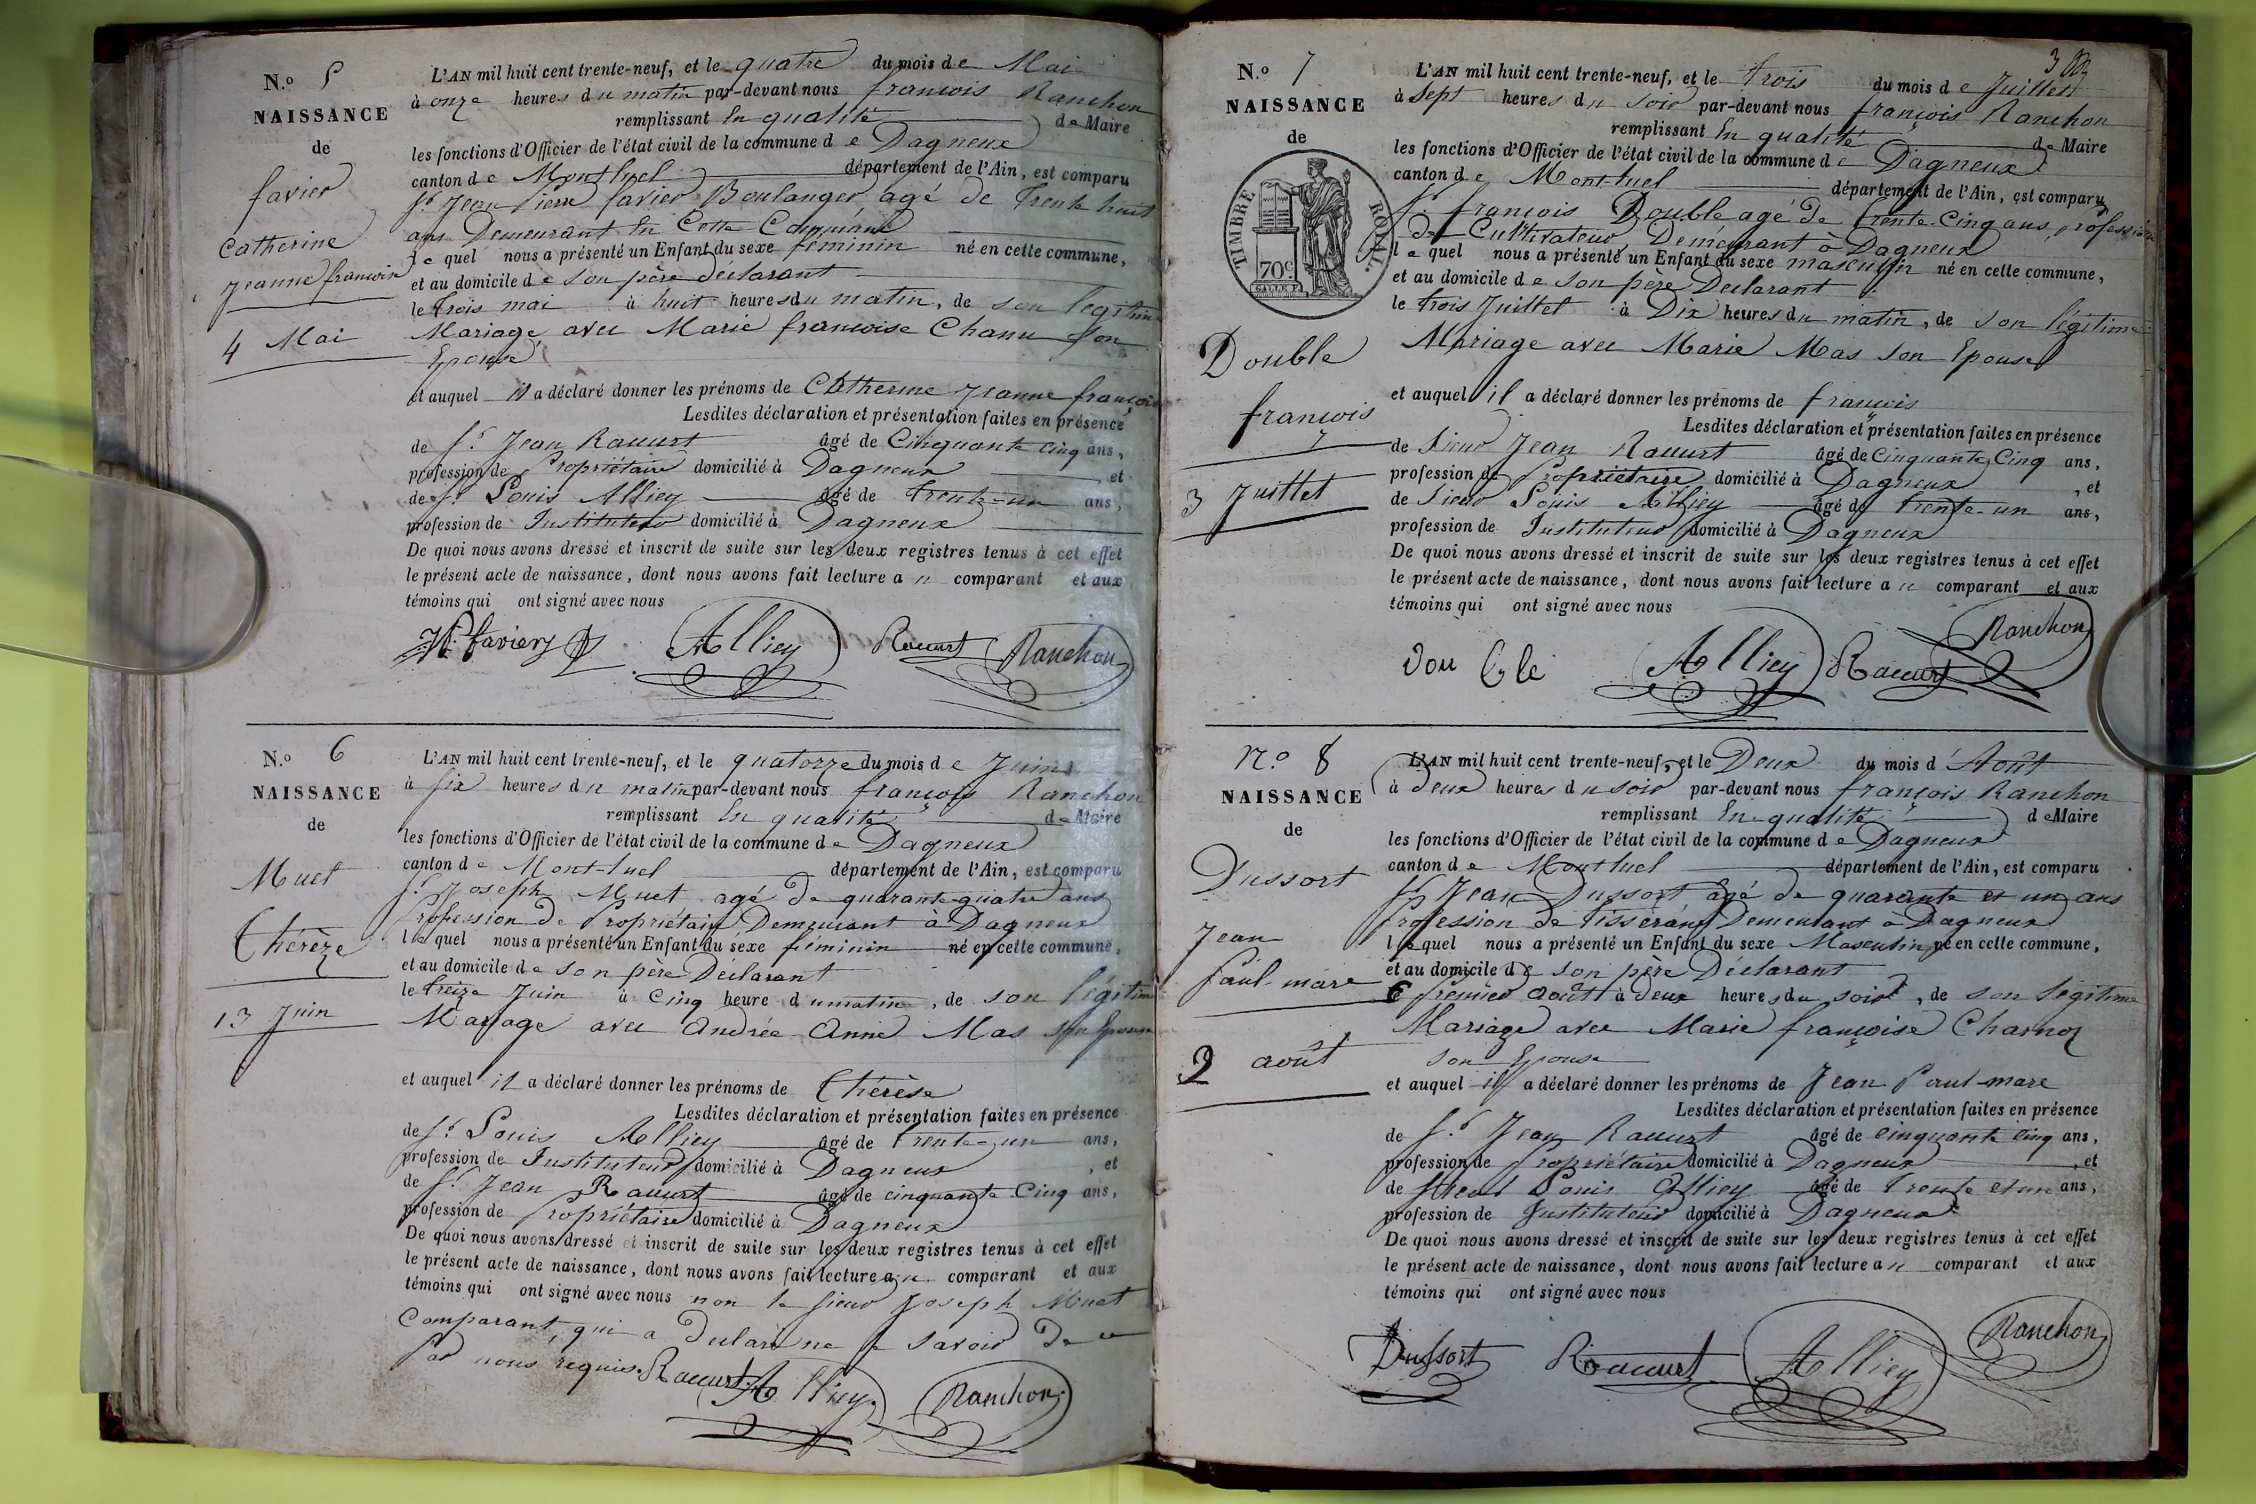 N.o 5
NAISSANCE
de
favier
Catherine
Jeanne francoise
4 Mai
L'AN mil huit cent trente-neuf, et le quatre du mois de Mai
à onze heures du matin par-devant nous francois Ranchon
remplissant En qualité de Maire
les fonctions d'Officier de l'état civil de la commune de Dagneux
canton de Montluel département de l'Ain, est comparu
Sr. Jean Pierre favier Boulanger agé de Trente huit
ans Demeurant En Cette Commune
lequel nous a présenté un Enfant du sexe féminin né en cette commune,
et au domicile de son père déclarant
le trois mai à huit heures du matin, de son légitime
Mariage avec Marie francoise Chanu son
Epouse
et auquel il a déclaré donner les prénoms de Catherine Jeanne françoise
Lesdites déclaration et présentation faites en présence
de Sr. Jean Racurt âgé de Cinquante cinq ans,
profession de Propriétaire domicilié à Dagneux, et
de Sr. Louis Alliey âgé de trente-un ans,
profession de Instituteur domicilié à Dagneux
De quoi nous avons dressé et inscrit de suite sur les deux registres tenus à cet effet
le présent acte de naissance, dont nous avons fait lecture au comparant et aux
témoins qui ont signé avec nous
favier Alliey Racurt Ranchon
N.o 6
NAISSANCE
de
Muet
Thérèze
13 Juin
L'AN mil huit cent trente-neuf, et le quatorze du mois de Juin
à six heures du matin par-devant nous françois Ranchon
remplissant En qualité de Maire
les fonctions d'Officier de l'état civil de la commune de Dagneux
canton de Mont-luel département de l'Ain, est comparu
Sr. Joseph Muet agé de quarante-quatre ans
Profession de Propriétaire Demeurant à Dagneux
lequel nous a présenté un Enfant du sexe féminin né en cette commune,
et au domicile de son père Déclarant
le treize Juin à Cinq heure du matin, de son légitime
Mariage avec Andrée Anne Mas son Epouse
et auquel il a déclaré donner les prénoms de Thérèse
Lesdites déclaration et présentation faites en présence
de Sr. Louis Alliey âgé de trente-un ans,
profession de Instituteur domicilié à Dagneux, et
de Sr. Jean Racurt âgé de cinquante Cinq ans,
profession de Propriétaire domicilié à Dagneux
De quoi nous avons dressé et inscrit de suite sur les deux registres tenus à cet effet
le présent acte de naissance, dont nous avons fait lecture au comparant et aux
témoins qui ont signé avec nous non le sieur Joseph Muet
Comparant, qui a Déclaré ne le savoir De ce
Par nous requis. Racurt Alliey Ranchon
N.o 7
NAISSANCE
de
TIMBRE ROYAL.
70c
Double
francois
3 Juillet
L'AN mil huit cent trente-neuf, et le trois du mois de Juillet
à Sept heures du soir par-devant nous françois Ranchon
remplissant En qualité de Maire
les fonctions d'Officier de l'état civil de la commune de Dagneux
canton de Mont-luel département de l'Ain, est comparu
Sr. françois Double agé de trente Cinq ans, profession
De Cultivateur Demeurant à Dagneux
lequel nous a présenté un Enfant du sexe masculin né en cette commune,
et au domicile de son père Déclarant
le trois Juillet à Dix heures du matin, de son légitime
Mariage avec Marie Mas son Epouse
et auquel il a déclaré donner les prénoms de françois
Lesdites déclaration et présentation faites en présence
de Sieur Jean Racurt âgé de Cinquante Cinq ans,
profession de Propriétaire domicilié à Dagneux, et
de Sieur Louis Alliey âgé de trente-un ans,
profession de Instituteur domicilié à Dagneux
De quoi nous avons dressé et inscrit de suite sur les deux registres tenus à cet effet
le présent acte de naissance, dont nous avons fait lecture au comparant et aux
témoins qui ont signé avec nous
Double Alliey Racurt Ranchon
N.o 8
NAISSANCE
de
Dussort
Jean
Paul-marc
2 août
L'AN mil huit cent trente-neuf, et le Deux du mois d'Août
à deux heures du soir par-devant nous françois Ranchon
remplissant En qualité de Maire
les fonctions d'Officier de l'état civil de la commune de Dagneux
canton de Montluel département de l'Ain, est comparu
Sr. Jean Dussort âgé de quarante et un ans
Profession de Tisserand Demeurant à Dagneux
lequel nous a présenté un Enfant du sexe Masculin né en cette commune,
et au domicile de son père Déclarant
le premier août à deux heures du soir, de son légitime
Mariage avec Marie françoise Charnoz
son Epouse
et auquel il a déclaré donner les prénoms de Jean Paul-marc
Lesdites déclaration et présentation faites en présence
de Sr. Jean Racurt âgé de cinquante cinq ans,
profession de Propriétaire domicilié à Dagneux, et
de Sieur Louis Alliey âgé de trente et un ans,
profession de Instituteur domicilié à Dagneux
De quoi nous avons dressé et inscrit de suite sur les deux registres tenus à cet effet
le présent acte de naissance, dont nous avons fait lecture au comparant et aux
témoins qui ont signé avec nous
Dussort Racurt Alliey Ranchon